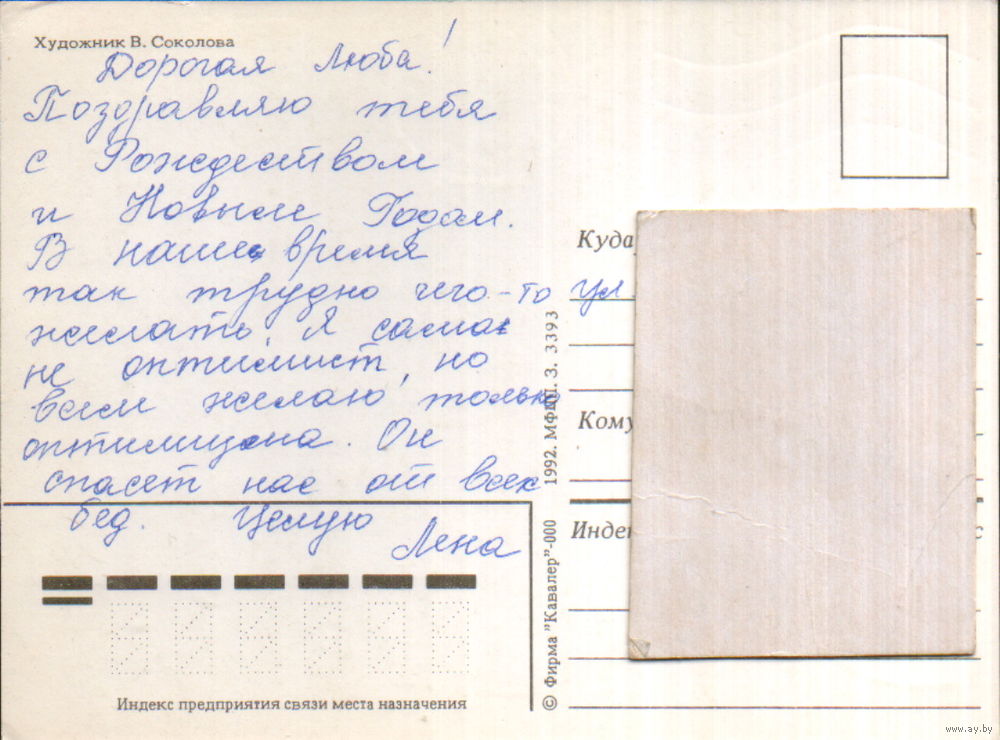 Художник В. Соколова
Дорогая Люба!
Поздравляю тебя
с Рождеством
и Новым Годом.
В наше время
так трудно чего-то
желать. Я сама
не оптимист, но
всем желаю только
оптимизма. Он
спасет нас от всех
бед. Целую
Лена
Индекс предприятия связи места назначения
© Фирма "Кавалер"-000
1992. МФП. З. 3393
Куда
ул
Кому
Индек
с
www.ay.by